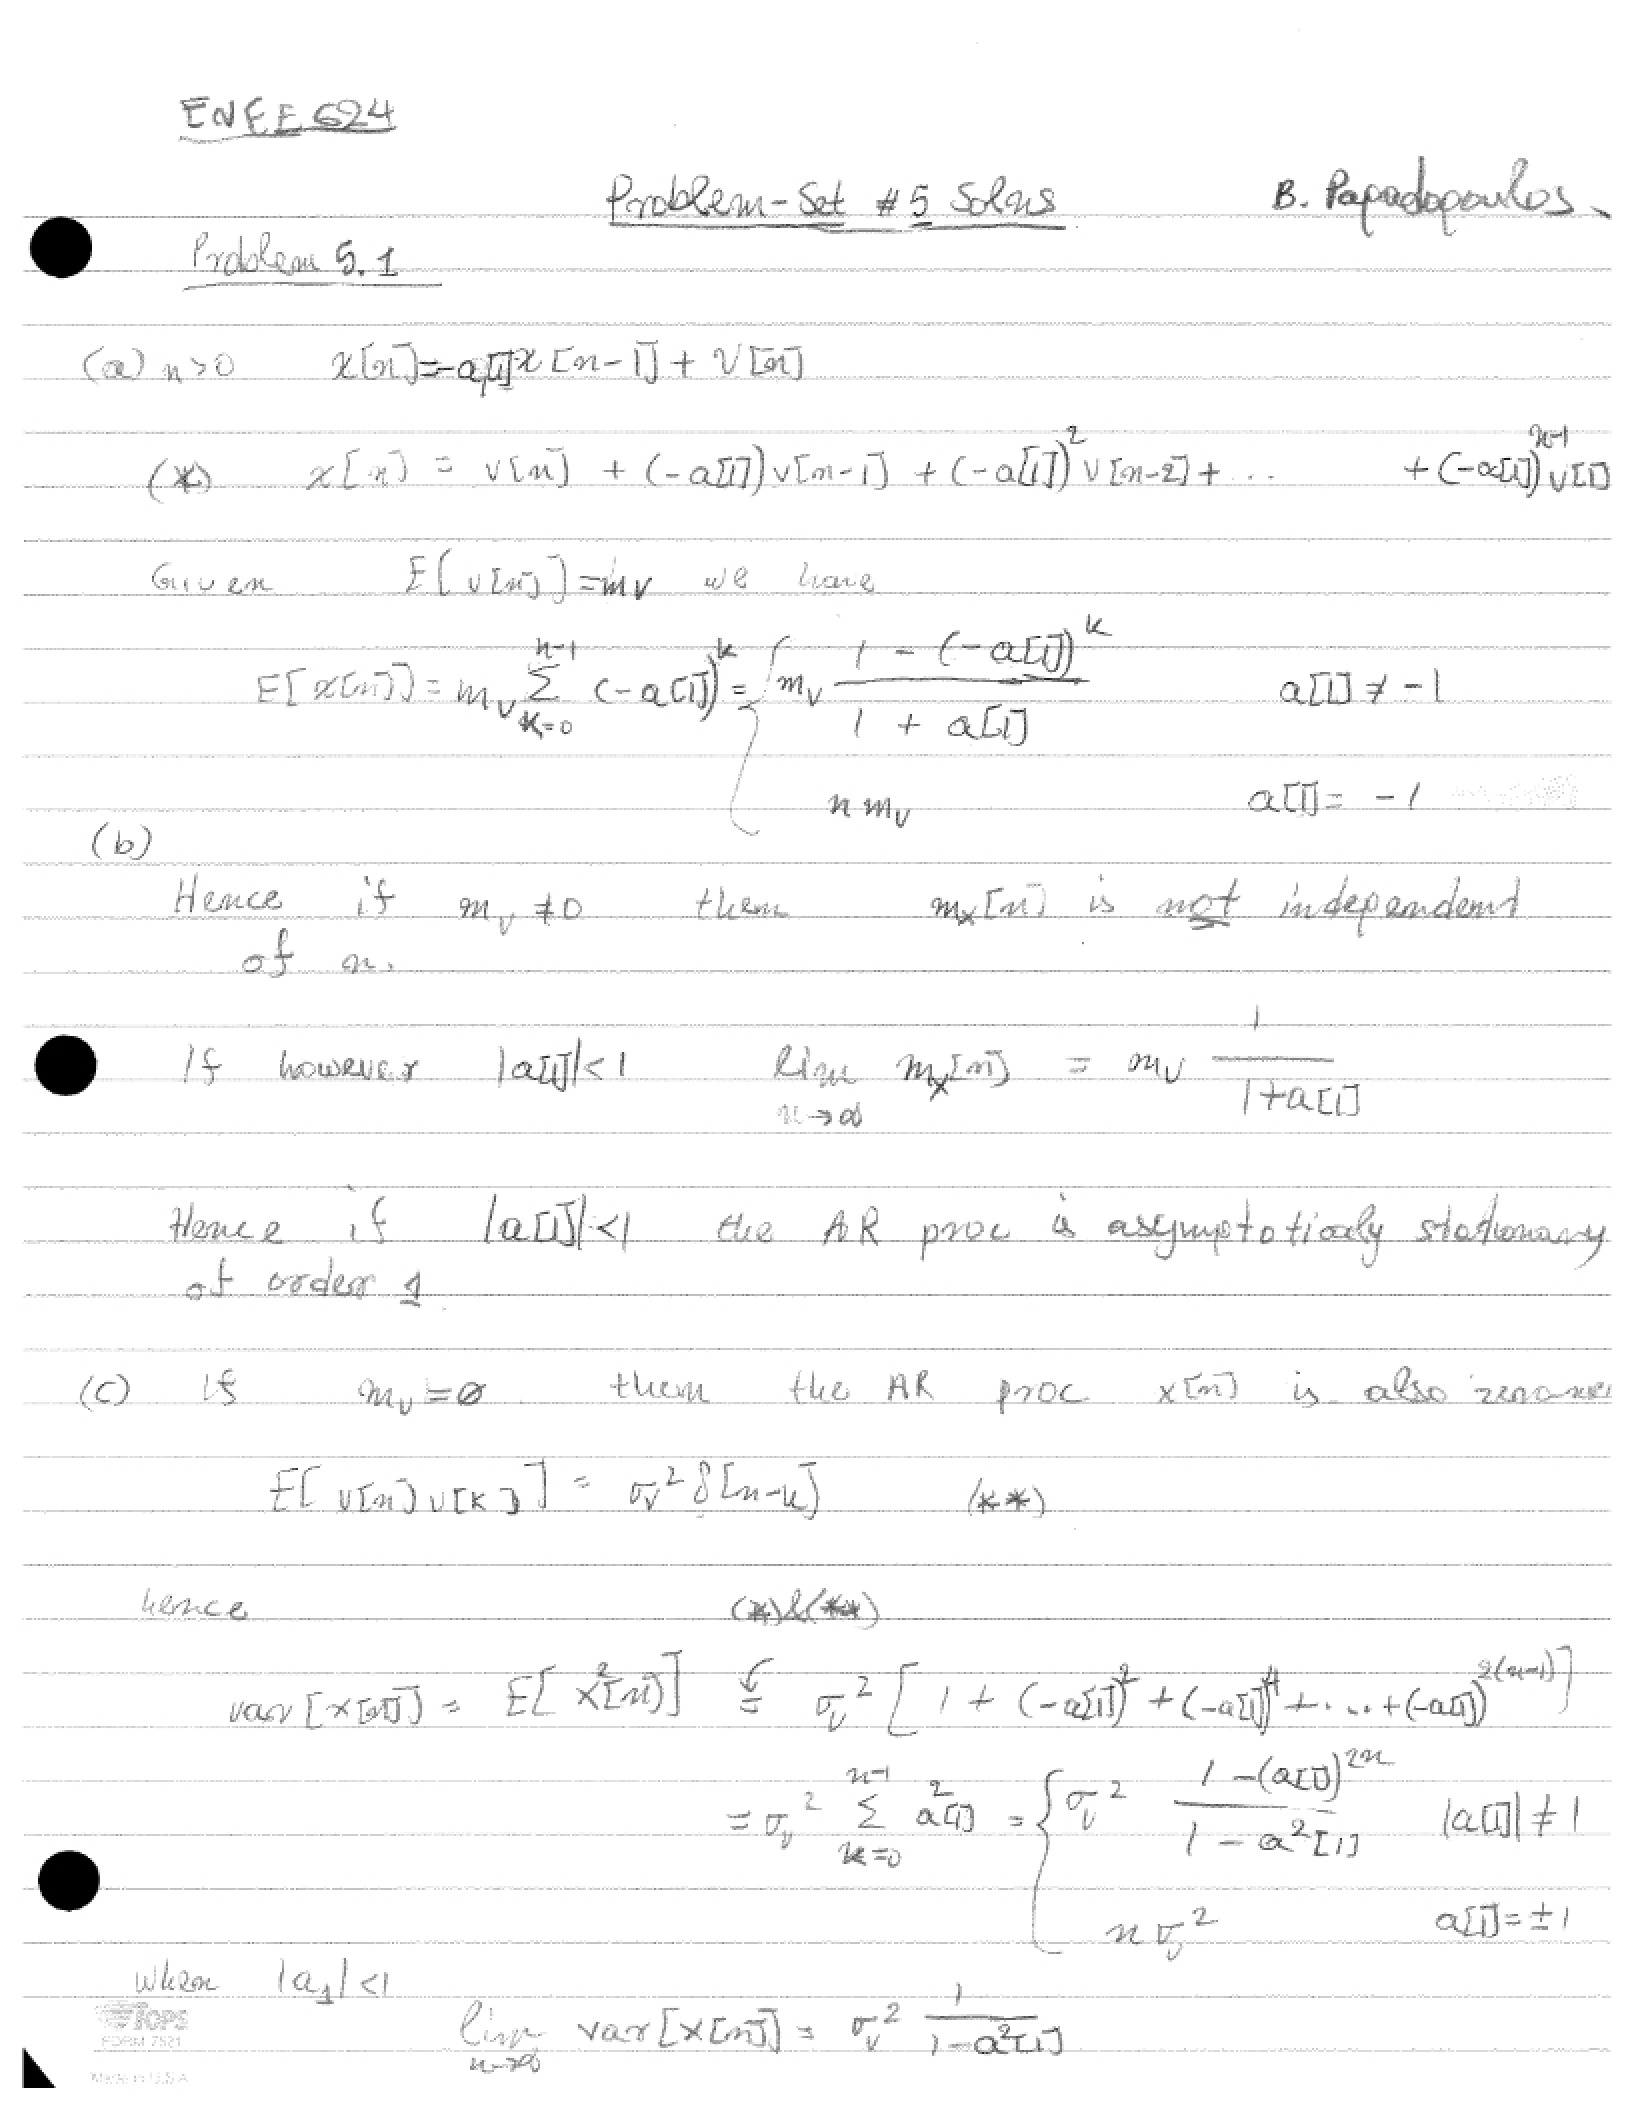 ENEE 624
Problem-Set #5 Solns B. Papadopoulos
Problem 5.1
(a) n>0 x[n]=-a[1]x[n-1]+V[n]
(*) x[n] = v[n] + (-a[1])v[n-1] + (-a[1])^2 v[n-2] + ... + (-a[1])^{n-1} v[1]
Given E[v[n]]=m_v we have
E[x[n]] = m_v \sum_{k=0}^{n-1} (-a[1])^k = { m_v \frac{1 - (-a[1])^k}{1 + a[1]} a[1] ≠ -1
n m_v a[1] = -1
(b)
Hence if m_v ≠ 0 then m_x[n] is not independent
of n.
If however |a[1]|<1 lim_{n→∞} m_x[n] = m_v \frac{1}{1+a[1]}
Hence if |a[1]|<1 the AR proc is asymptotically stationary
of order 1
(c) if m_v = 0 then the AR proc x[n] is also
E[v[n]v[k]] = σ_v^2 δ[n-k] (**)
hence (*)&(**)
var[x[n]] = E[x^2[n]] = σ_v^2 [1 + (-a[1])^2 + (-a[1])^4 + ... + (-a[1])^{2(n-1)}]
= σ_v^2 \sum_{k=0}^{n-1} a^2[1] = { σ_v^2 \frac{1-(a[1])^{2n}}{1-a^2[1]} |a[1]| ≠ 1
n σ_v^2 a[1] = ±1
when |a_1|<1
lim_{n→∞} var[x[n]] = σ_v^2 \frac{1}{1-a^2[1]}
TOPS
FORM 7521
Made in U.S.A